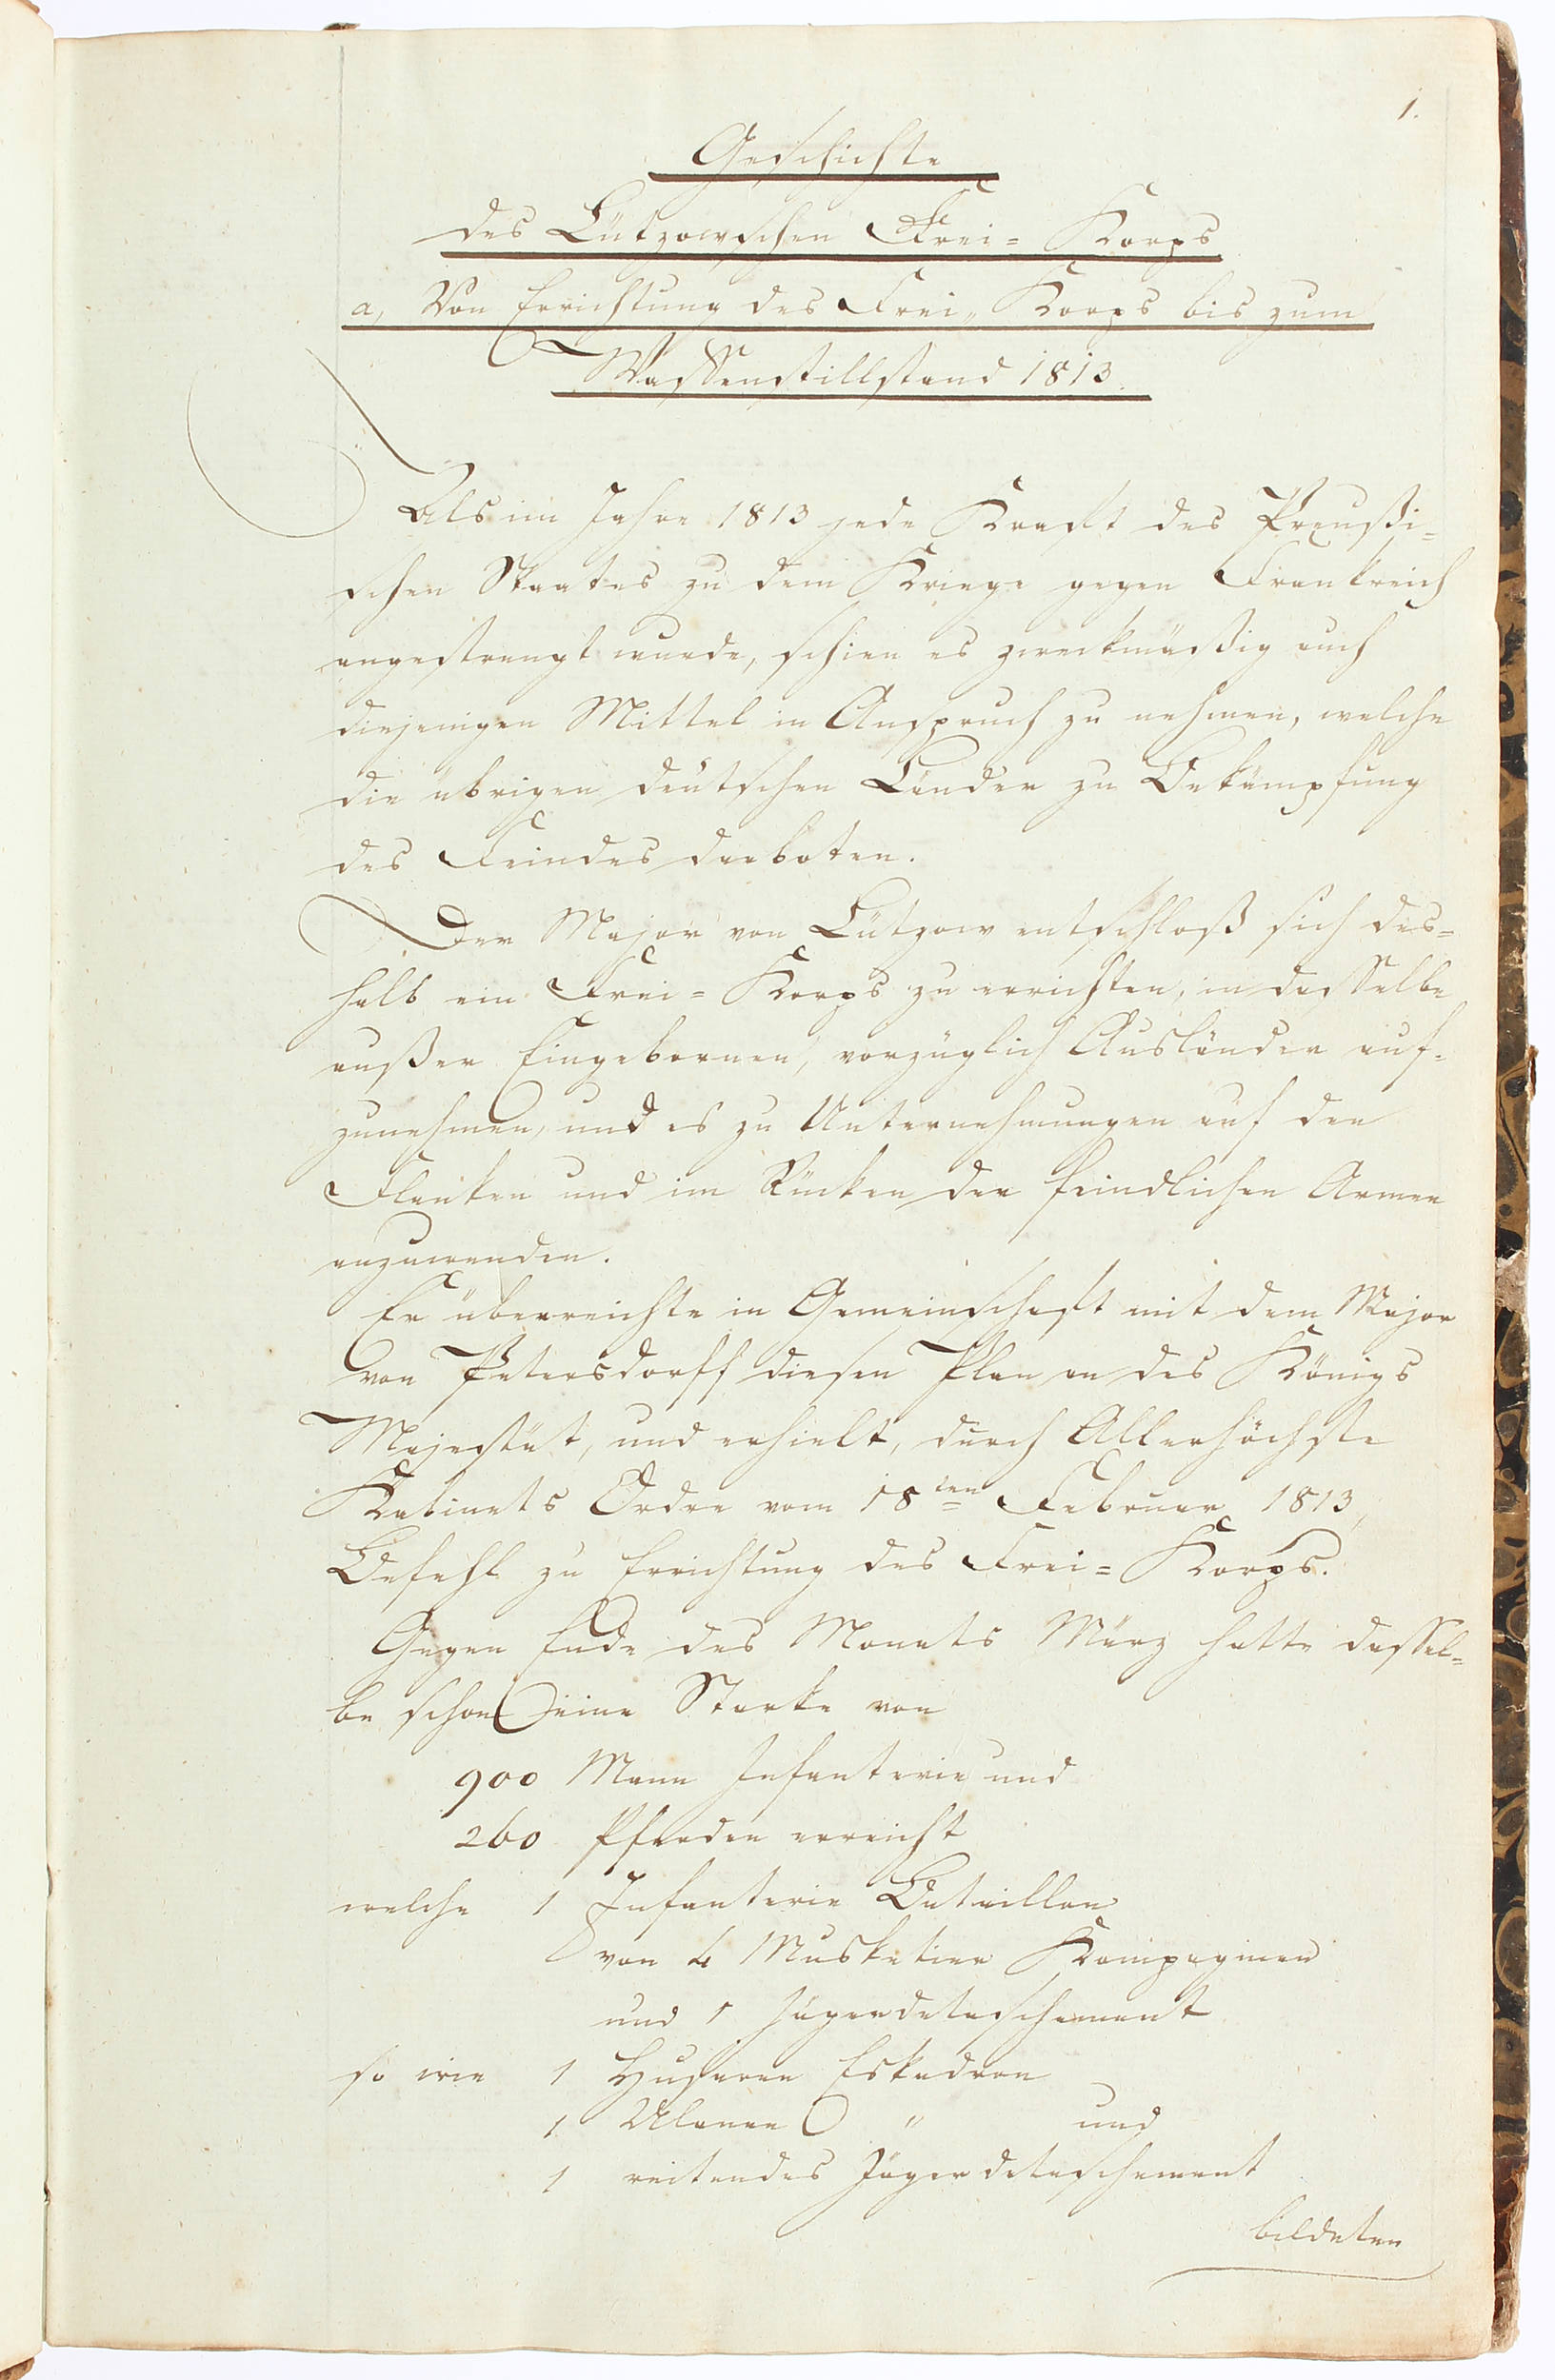 1.
Geschichte
des Lützowschen Frei= Korps
a, Von Errichtung des Frei„ Korps bis zum
Waffenstillstand 1813.
Als im Jahre 1813 jede Kraft des Preußi=
schen Staates zu dem Kriege gegen Frankreich
angestrengt wurde, schien es zweckmäßig auch
diejenigen Mittel in Anspruch zu nehmen, welche
die übrigen deutschen Länder zu Bekämpfung
des Feindes darboten.
Der Major von Lützow entschloß sich des=
halb ein Frei= Korps zu errichten, in dasselbe
außer Eingebornen, vorzüglich Ausländer auf=
zunehmen, und es zu Unternehmungen auf den
Flanken und im Rücken der feindlichen Armee
anzuwenden.
Er überreichte in Gemeinschaft mit dem Major
von Petersdorff diesen Plan an des Königs
Majestät, und erhielt, durch Allerhöchste
Kabinets Ordre vom 18ten Februar 1813,
Befehl zu Errichtung des Frei= Korps.
Gegen Ende des Monats März hatte dassel=
be schon eine Starke von
900 Mann Infanterie und
260 Pferden erreicht
welche 1 Infanterie Bataillon
von 4 Musketier Kompagnien
und 1 Jägerdetaschement
so wie 1 Husaren Eskadron
1 Ulanen " und
1 reitendes Jäger detaschement
bildeten